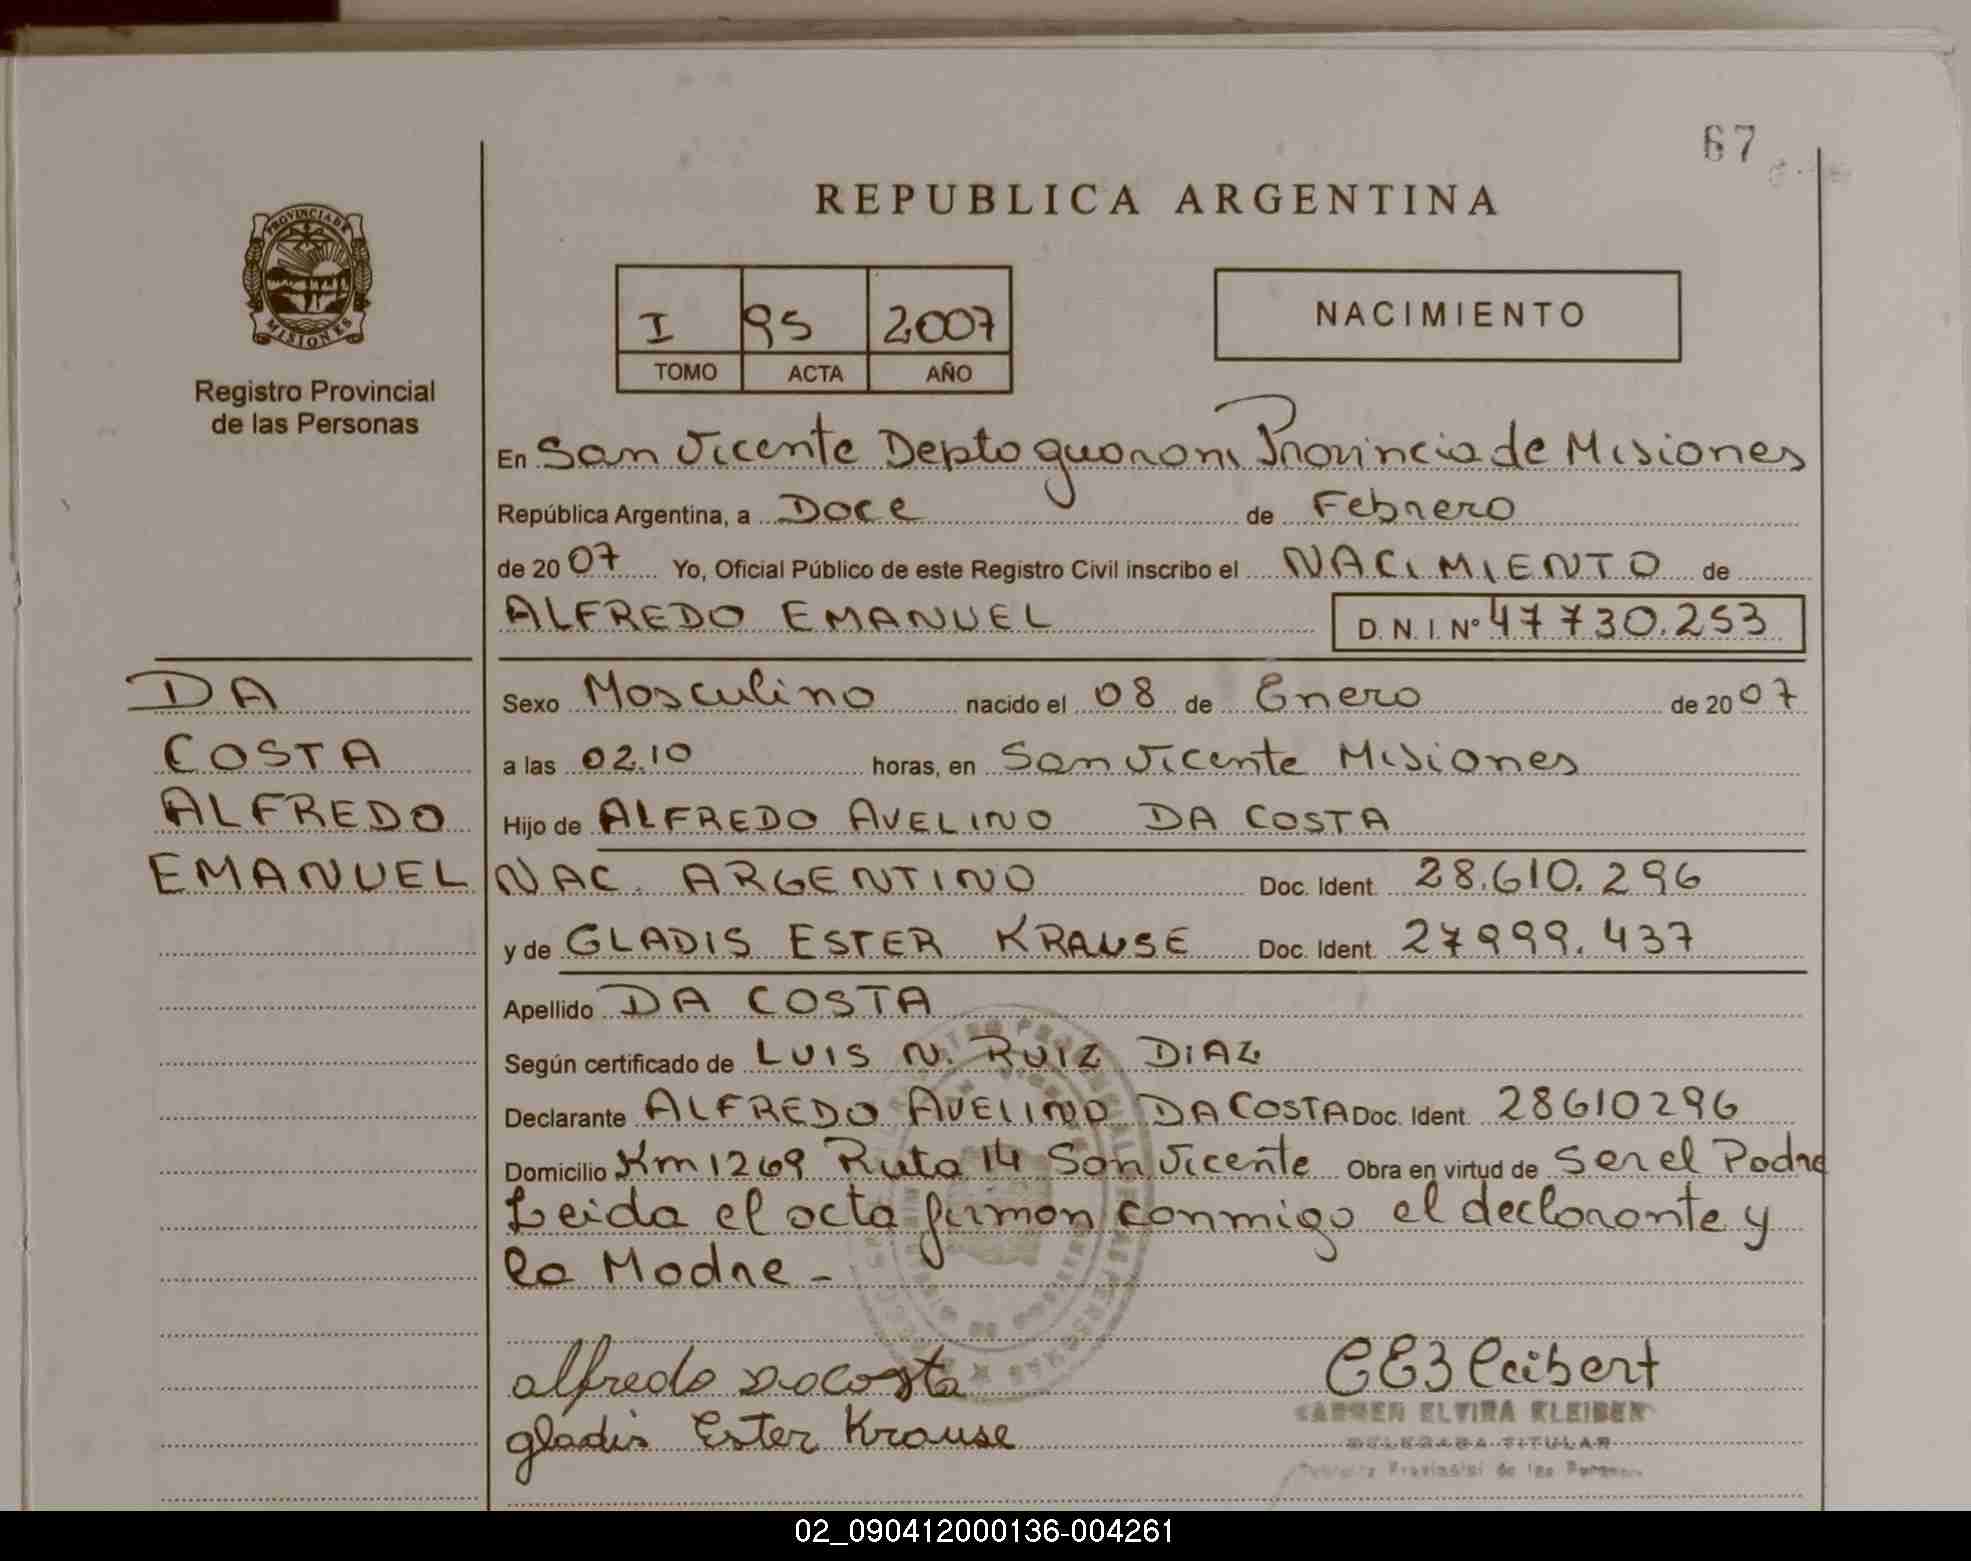 67
REPUBLICA ARGENTINA
PROVINCIA DE
MISIONES
Registro Provincial
de las Personas
I 95 2007
TOMO ACTA AÑO
NACIMIENTO
En San Vicente Depto guarani Provincia de Misiones
República Argentina, a Doce de Febrero
de 2007 Yo, Oficial Público de este Registro Civil inscribo el NACIMIENTO de
ALFREDO EMANUEL D. N. I. Nº 47730.253
DA
COSTA
ALFREDO
EMANUEL
Sexo Masculino nacido el 08 de Enero de 2007
a las 02.10 horas, en San Vicente Misiones
Hijo de ALFREDO AVELINO DA COSTA
NAC. ARGENTINO Doc. Ident. 28.610.296
y de GLADIS ESTER KRAUSE Doc. Ident. 27999.437
Apellido DA COSTA
Según certificado de LUIS N. RUIZ DIAZ
Declarante ALFREDO AVELINO DA COSTA Doc. Ident. 28610296
Domicilio Km 1269 Ruta 14 San Vicente Obra en virtud de Ser el Padre
Leida el acta firman conmigo el declarante y
la Madre -
alfredo Dacosta
gladis Ester Krause
CARMEN ELVIRA
DELEGADA TITULAR
Provincial de las
02_090412000136-004261